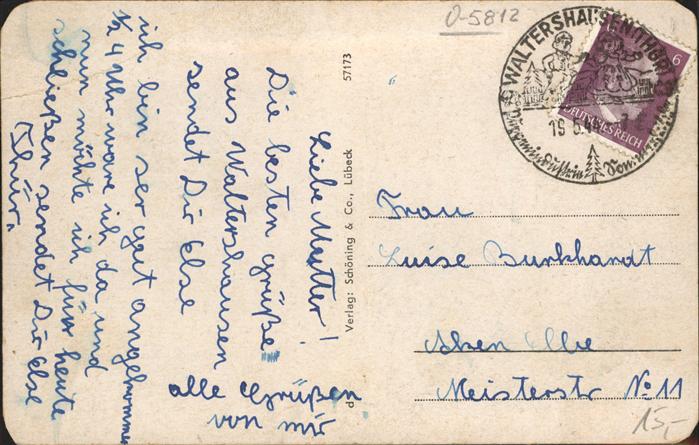 Liebe Mutter!
Die besten Grüße
aus Waltershausen
sendet Dir Else
ich bin ser gut angekommen
½ 4 Uhr ware ich da und
nun möchte ich für heute
schließen sendet Dir Else
Thür.
alle Grüßen
von mir
Verlag: Schöning & Co., Lübeck
57173
0-5812
WALTERSHAUSEN (THÜR)
19 5
6
DEUTSCHES REICH
Frau
Luise Burkhardt
Aken Elbe
Meisterstr No 11
15,-